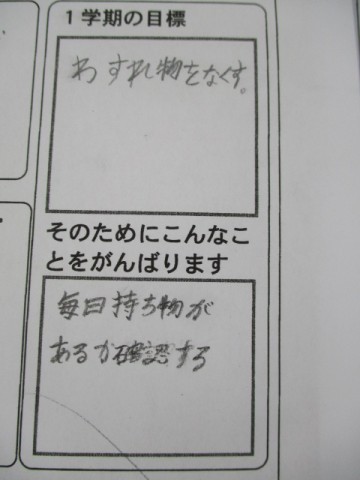 1学期の目標
わすれ物をなくす。
そのためにこんなこ
とをがんばります
毎日持ち物が
あるか確認する